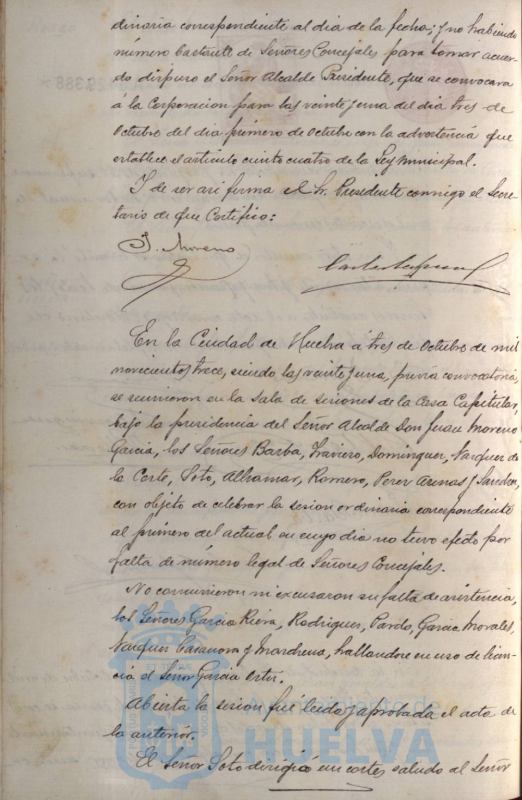 dinaria correspondiente al dia de la fecha; y no habiendo
número bastante de Señores Concejales para tomar acuer-
do dispuso el Señor Alcalde Presidente, que se convocara
á la Corporacion para las veinte y una del dia tres de
Octubre del dia primero de Octubre con la advertencia que
establece el artículo ciento cuatro de la Ley Municipal.
Y de ser asi firma el Sr. Presidente conmigo el Secre-
tario de que Certifico:
J. Moreno
En la Ciudad de Huelva á tres de Octubre de mil
novecientos trece, siendo las veinte y una, previa convocatoria,
se reunieron en la Sala de sesiones de la Casa Capitular,
bajo la presidencia del Señor Alcalde Don Juan Moreno
Garcia, los Señores Barba, Traviero, Dominguez, Vazquez de
la Corte, Soto, Alhamar, Romero, Perez Arenas y Sanchez,
con objeto de celebrar la sesion ordinaria correspondiente
al primero del actual en cuyo dia no tuvo efecto por
falta de número legal de Señores Concejales.
No concurrieron ni excusaron su falta de asistencia,
los Señores Garcia Riera, Rodriguez, Pardo, Garcia Morales,
Vazquez Casanova y Mordreno, hallandose en uso de licen-
cia el Señor Garcia
Abierta la sesion fué leida y aprobada el acta de
la anterior.
El Señor Soto dirigió un cortes saludo al Señor
Ayuntamiento de
HUELVA